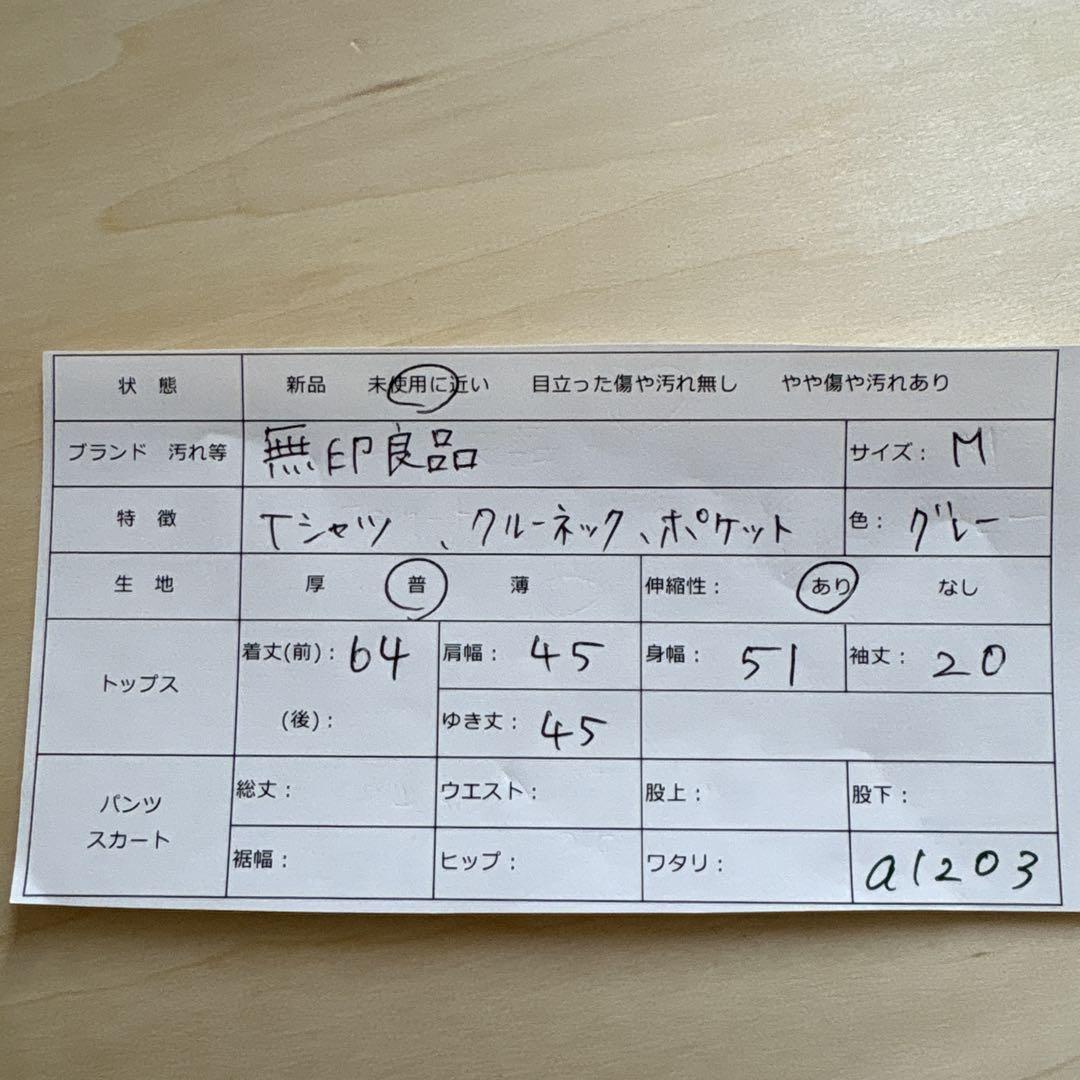 状 態 新品 未使用に近い 目立った傷や汚れ無し やや傷や汚れあり
ブランド 汚れ等 無印良品 サイズ: M
特 徴 Tシャツ 、クルーネック、ポケット 色: グレー
生 地 厚 普 薄 伸縮性: あり なし
トップス 着丈(前): 64 肩幅: 45 身幅: 51 袖丈: 20
(後): ゆき丈: 45
パンツ スカート 総丈: ウエスト: 股上: 股下:
裾幅: ヒップ: ワタリ: a1203